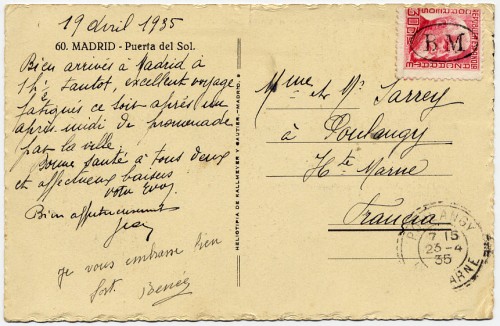 19 avril 1935
60. MADRID - Puerta del Sol.
Bien arrivés à Madrid à
excellent voyage
fatigués ce soir après un
après midi de promenade
par la ville.
Bonne santé à tous deux
et affectueux baisers
Bien affectueusement
Jean
je vous embrasse bien
fort
HELIOTIPIA DE KALLMEYER Y GAUTIER-MADRID.
CORREOS
R. M
Mme et Mr Sarrey
à Poulangy
Hte Marne
Francia
POULANGY
7 15
23-4
35
MARNE